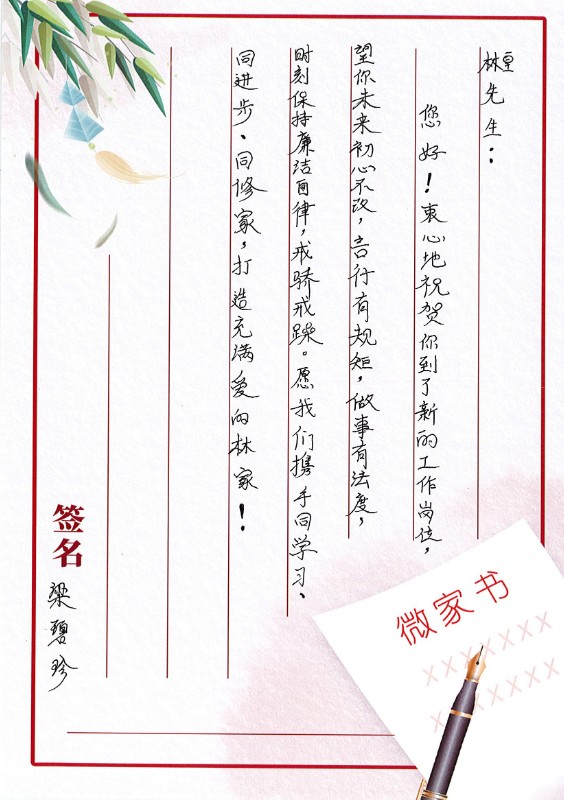 林皇先生：
您好！衷心地祝贺你到了新的工作岗位，
望你未来初心不改，言行有规矩，做事有法度，
时刻保持廉洁自律，戒骄戒躁。愿我们携手同学习、
同进步、同修家，打造充满爱的林家！
签名
梁碧珍
微家书
XXXXXXX
XXXXXXX